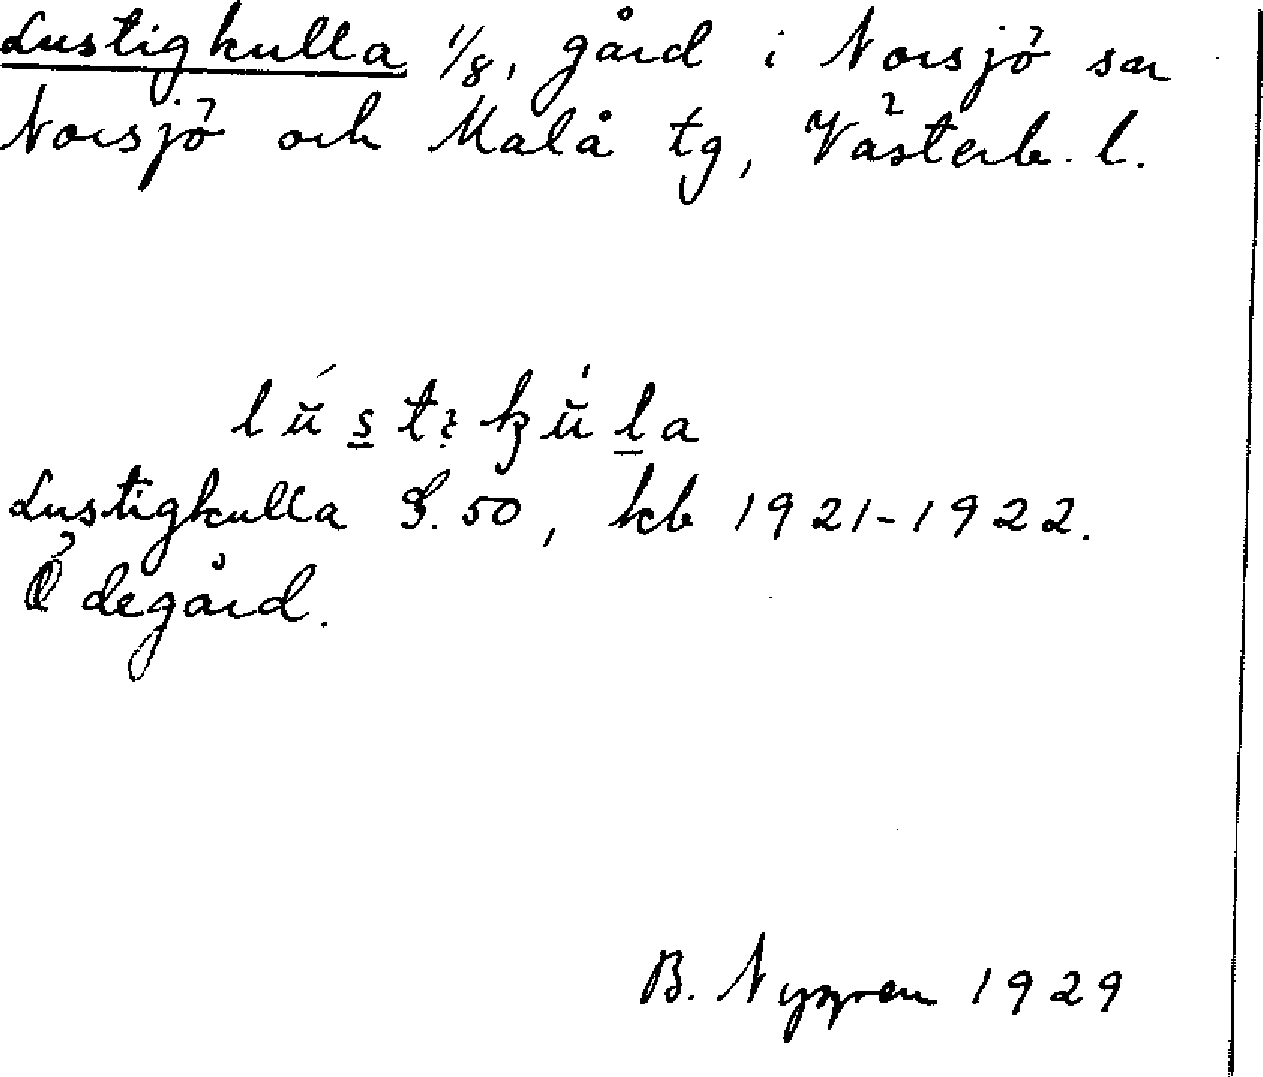 Lustigkulla 1/8, gård i Norsjö sn
Norsjö och Malå tg, Västerb. l.
lŭ́s̲tıkŭ́l̲a
Lustigkulla S. 50, kb 1921-1922.
Ödegård.
B. Nygren 1929